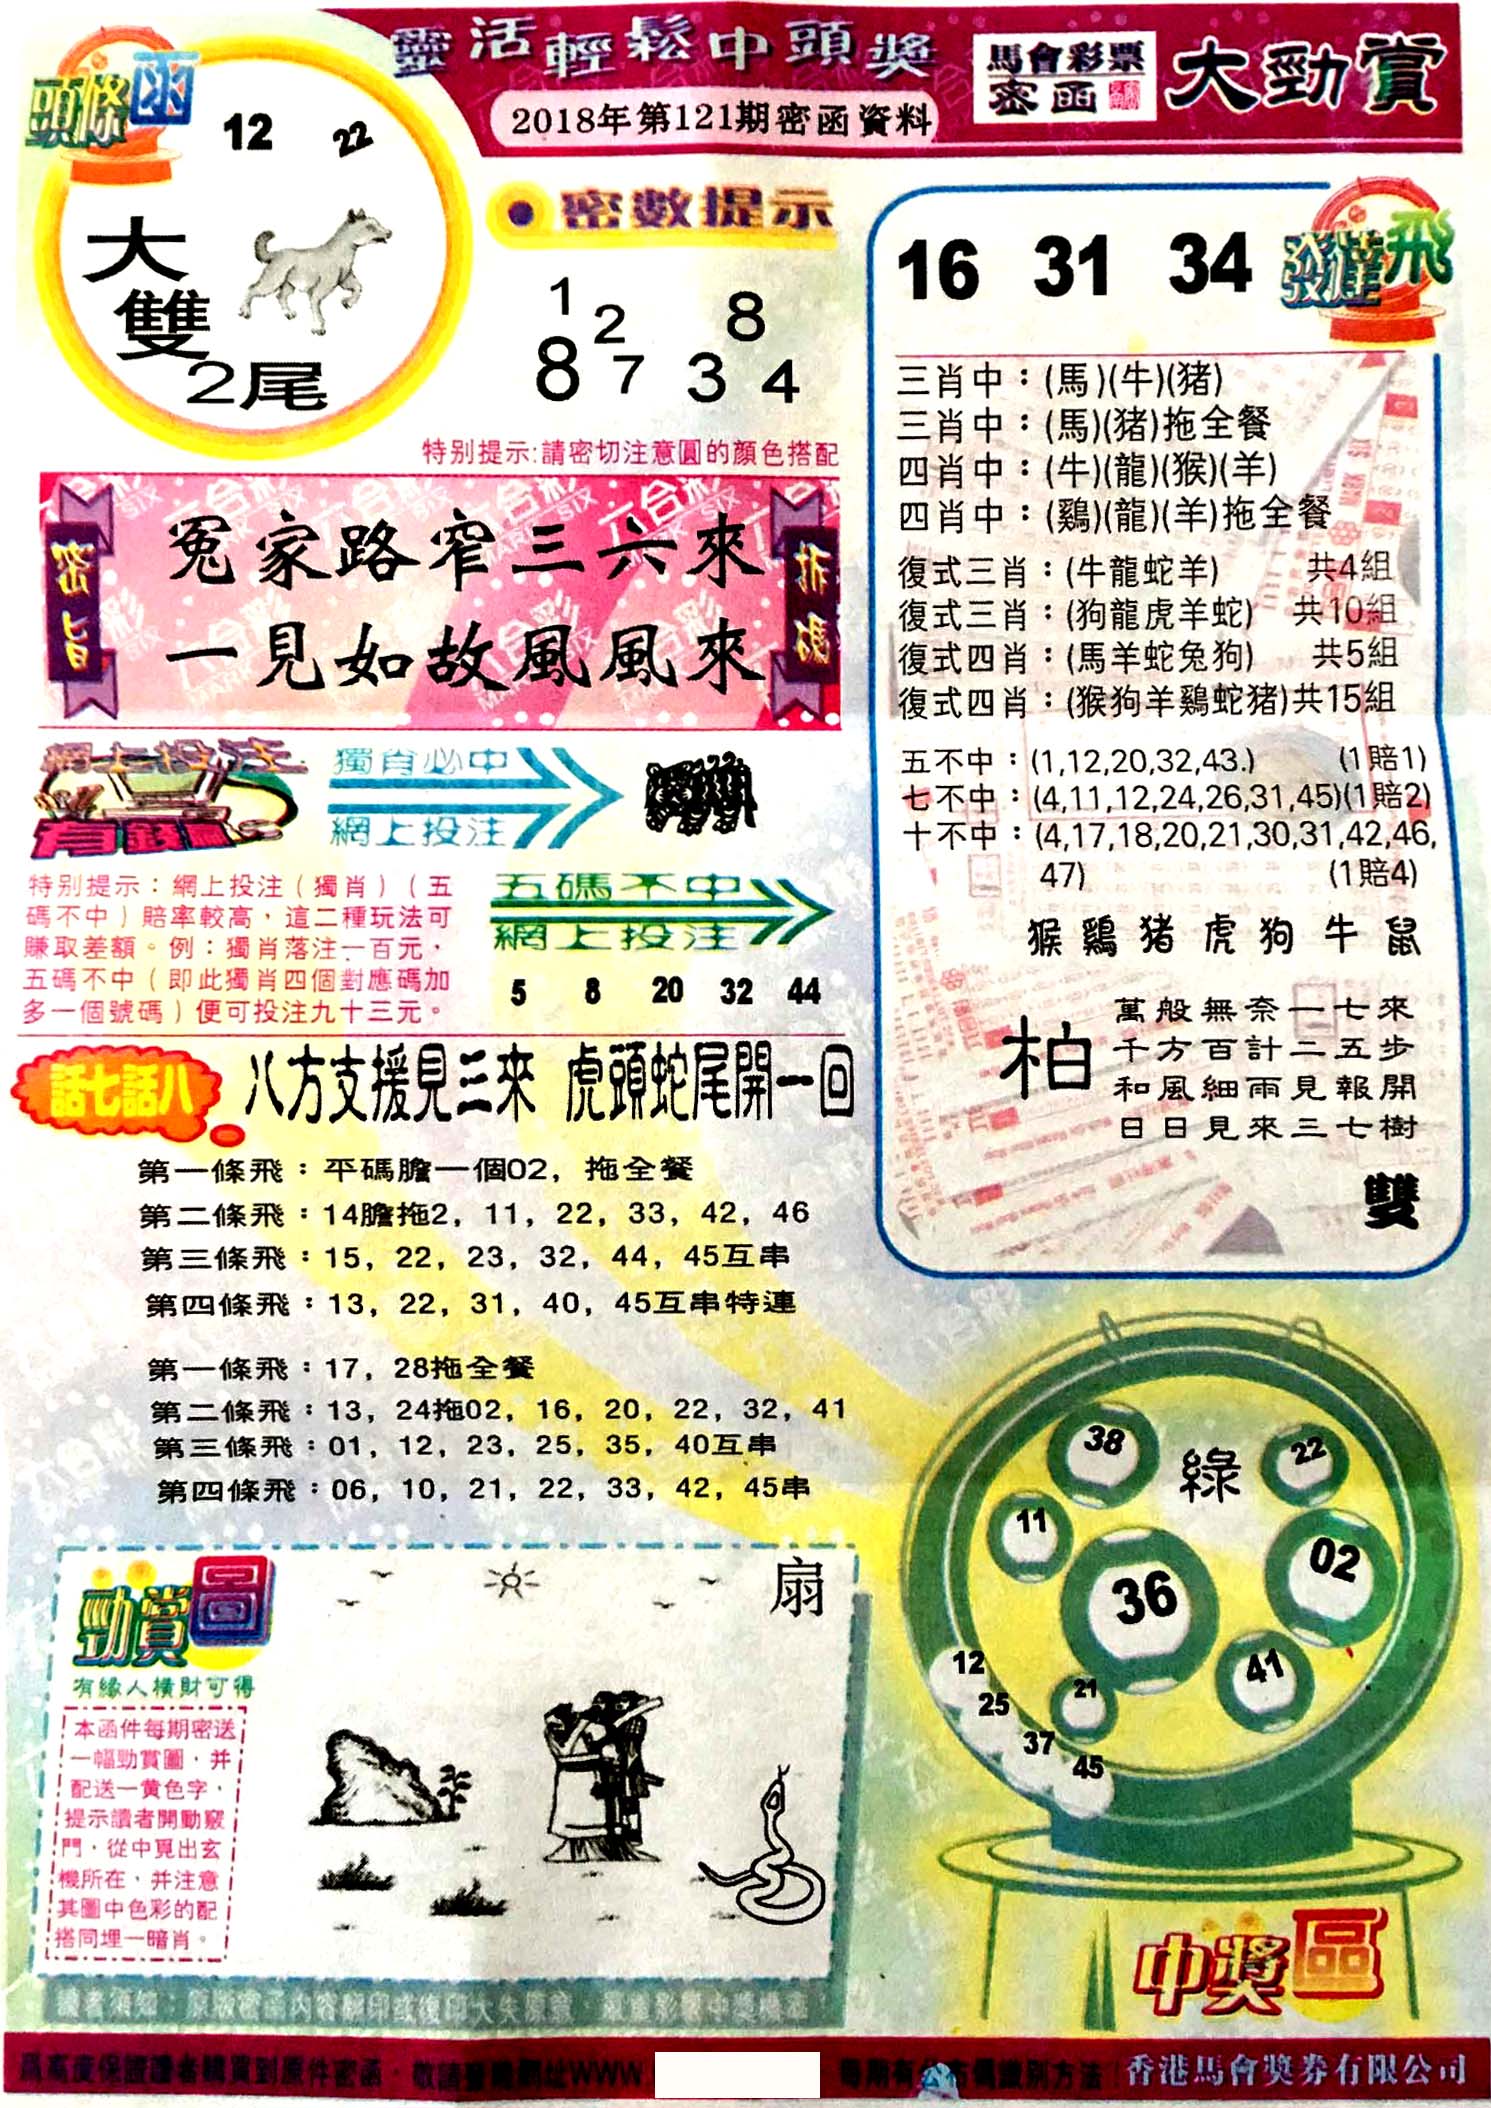 靈活輕鬆中頭獎
2018年第121期密函資料
馬會彩票
密函
大勁賞
頭條函
12 22
大
雙
2尾
密數提示
1 2 8
8 7 3 4
特别提示:請密切注意圓的顏色搭配
密旨
冤家路窄三六來
一見如故風風來
網上投注
獨肖必中
網上投注
特别提示：網上投注（獨肖）（五
碼不中）賠率較高，這二種玩法可
賺取差額。例：獨肖落注一百元，
五碼不中（即此獨肖四個對應碼加
多一個號碼）便可投注九十三元。
五碼不中
網上投注
5 8 20 32 44
話七話八
八方支援見三來 虎頭蛇尾開一回
第一條飛：平碼膽一個02，拖全餐
第二條飛：14膽拖2，11，22，33，42，46
第三條飛：15，22，23，32，44，45互串
第四條飛：13，22，31，40，45互串特連
第一條飛：17，28拖全餐
第二條飛：13，24拖02，16，20，22，32，41
第三條飛：01，12，23，25，35，40互串
第四條飛：06，10，21，22，33，42，45串
16 31 34
發達飛
三肖中：(馬)(牛)(猪)
三肖中：(馬)(猪)拖全餐
四肖中：(牛)(龍)(猴)(羊)
四肖中：(鷄)(龍)(羊)拖全餐
復式三肖：(牛龍蛇羊) 共4組
復式三肖：(狗龍虎羊蛇) 共10組
復式四肖：(馬羊蛇兔狗) 共5組
復式四肖：(猴狗羊鷄蛇猪)共15組
五不中：(1,12,20,32,43.) (1賠1)
七不中：(4,11,12,24,26,31,45)(1賠2)
十不中：(4,17,18,20,21,30,31,42,46,
47) (1賠4)
猴鷄猪虎狗牛鼠
柏
萬般無奈一七來
千方百計二五步
和風細雨見報開
日日見來三七樹
雙
勁賞圖
有緣人橫財可得
本函件每期密送
一幅勁賞圖，并
配送一黄色字，
提示讀者開動竅
門，從中覓出玄
機所在，并注意
其圖中色彩的配
搭同埋一暗肖。
扇
綠
38
22
11
36
02
41
21
12
25
37
45
中獎區
香港馬會獎券有限公司